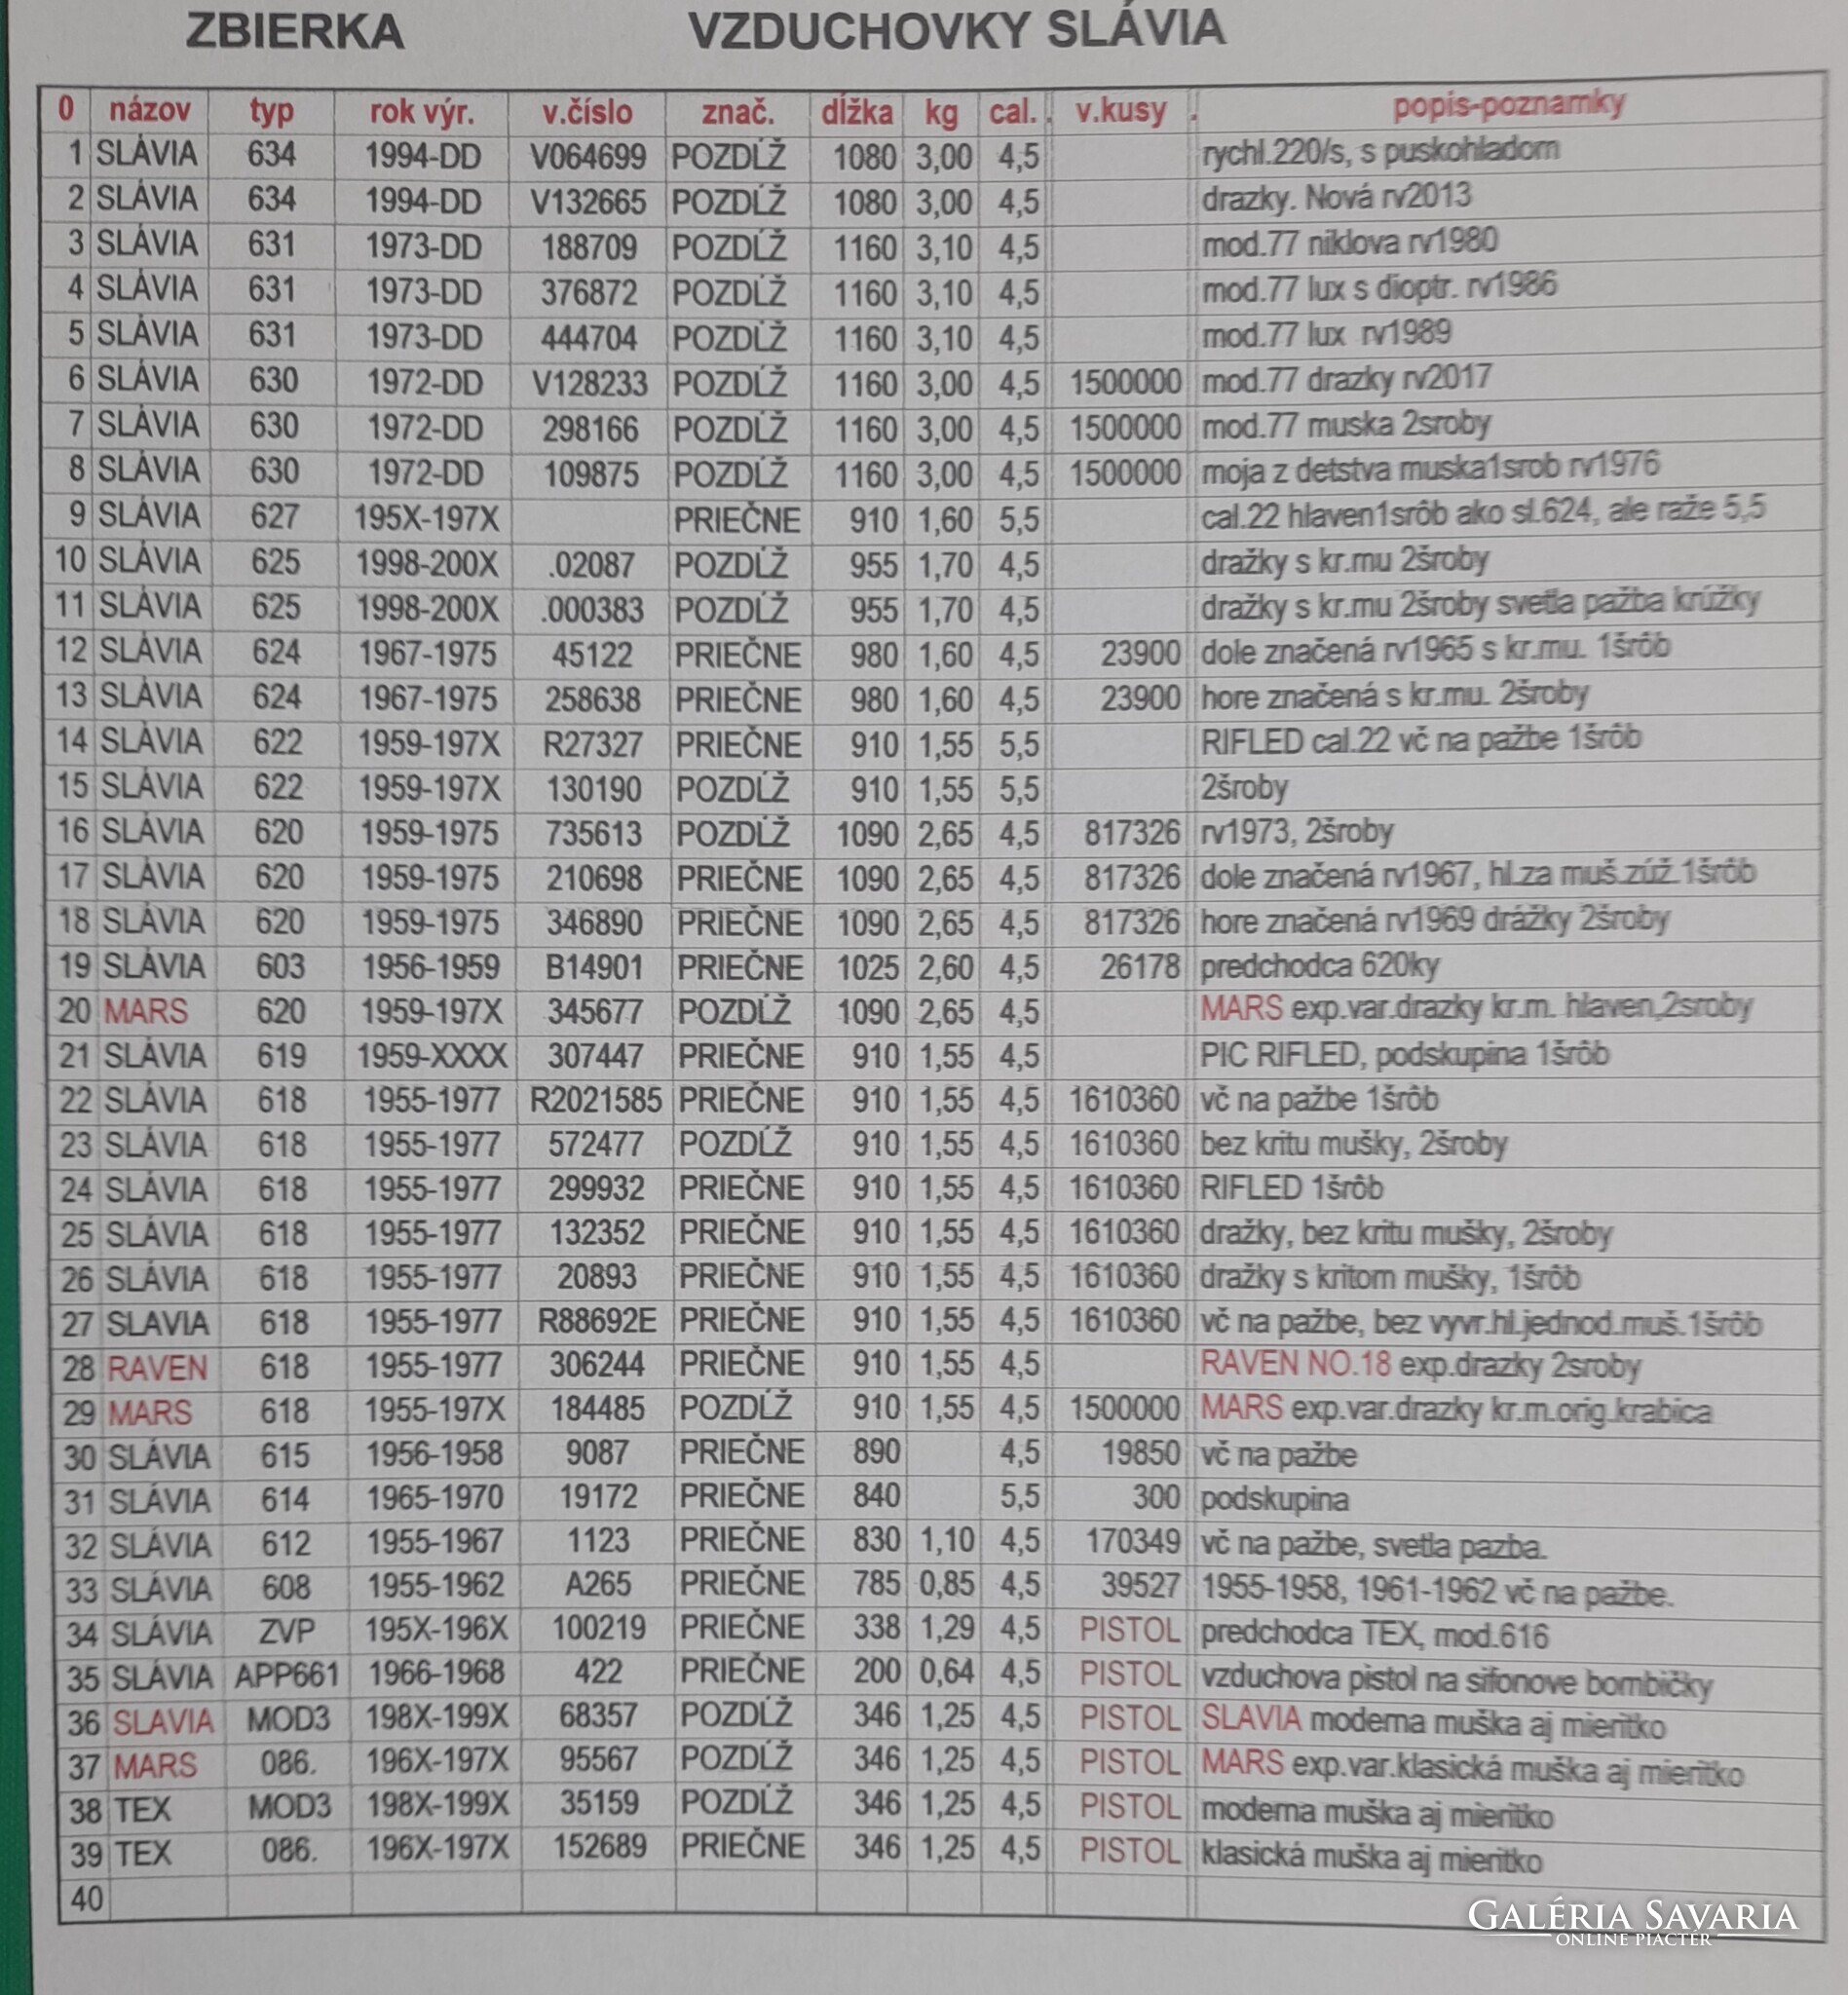 ZBIERKA VZDUCHOVKY SLÁVIA
0 názov typ rok výr. v.číslo znač. dĺžka kg cal. v.kusy popis-poznamky
1 SLÁVIA 634 1994-DD V064699 POZDĹŽ 1080 3,00 4,5 rychl.220/s, s puskohladom
2 SLÁVIA 634 1994-DD V132665 POZDĹŽ 1080 3,00 4,5 drazky. Nová rv2013
3 SLÁVIA 631 1973-DD 188709 POZDĹŽ 1160 3,10 4,5 mod.77 niklova rv1980
4 SLÁVIA 631 1973-DD 376872 POZDĹŽ 1160 3,10 4,5 mod.77 lux s dioptr. rv1986
5 SLÁVIA 631 1973-DD 444704 POZDĹŽ 1160 3,10 4,5 mod.77 lux rv1989
6 SLÁVIA 630 1972-DD V128233 POZDĹŽ 1160 3,00 4,5 1500000 mod.77 drazky rv2017
7 SLÁVIA 630 1972-DD 298166 POZDĹŽ 1160 3,00 4,5 1500000 mod.77 muska 2sroby
8 SLÁVIA 630 1972-DD 109875 POZDĹŽ 1160 3,00 4,5 1500000 moja z detstva muska1srob rv1976
9 SLÁVIA 627 195X-197X PRIEČNE 910 1,60 5,5 cal.22 hlaven1srôb ako sl.624, ale raže 5,5
10 SLÁVIA 625 1998-200X .02087 POZDĹŽ 955 1,70 4,5 dražky s kr.mu 2šroby
11 SLÁVIA 625 1998-200X .000383 POZDĹŽ 955 1,70 4,5 dražky s kr.mu 2šroby svetla pažba krúžky
12 SLÁVIA 624 1967-1975 45122 PRIEČNE 980 1,60 4,5 23900 dole značená rv1965 s kr.mu. 1šrôb
13 SLÁVIA 624 1967-1975 258638 PRIEČNE 980 1,60 4,5 23900 hore značená s kr.mu. 2šroby
14 SLÁVIA 622 1959-197X R27327 PRIEČNE 910 1,55 5,5 RIFLED cal.22 vč na pažbe 1šrôb
15 SLÁVIA 622 1959-197X 130190 POZDĹŽ 910 1,55 5,5 2šroby
16 SLÁVIA 620 1959-1975 735613 POZDĹŽ 1090 2,65 4,5 817326 rv1973, 2šroby
17 SLÁVIA 620 1959-1975 210698 PRIEČNE 1090 2,65 4,5 817326 dole značená rv1967, hl.za muš.zúž.1šrôb
18 SLÁVIA 620 1959-1975 346890 PRIEČNE 1090 2,65 4,5 817326 hore značená rv1969 drážky 2šroby
19 SLÁVIA 603 1956-1959 B14901 PRIEČNE 1025 2,60 4,5 26178 predchodca 620ky
20 MARS 620 1959-197X 345677 POZDĹŽ 1090 2,65 4,5 MARS exp.var.drazky kr.m. hlaven,2sroby
21 SLÁVIA 619 1959-XXXX 307447 PRIEČNE 910 1,55 4,5 PIC RIFLED, podskupina 1šrôb
22 SLÁVIA 618 1955-1977 R2021585 PRIEČNE 910 1,55 4,5 1610360 vč na pažbe 1šrôb
23 SLÁVIA 618 1955-1977 572477 POZDĹŽ 910 1,55 4,5 1610360 bez kritu mušky, 2šroby
24 SLÁVIA 618 1955-1977 299932 PRIEČNE 910 1,55 4,5 1610360 RIFLED 1šrôb
25 SLÁVIA 618 1955-1977 132352 PRIEČNE 910 1,55 4,5 1610360 dražky, bez kritu mušky, 2šroby
26 SLÁVIA 618 1955-1977 20893 PRIEČNE 910 1,55 4,5 1610360 dražky s kritom mušky, 1šrôb
27 SLAVIA 618 1955-1977 R88692E PRIEČNE 910 1,55 4,5 1610360 vč na pažbe, bez vyvr.hl.jednod.muš.1šrôb
28 RAVEN 618 1955-1977 306244 PRIEČNE 910 1,55 4,5 RAVEN NO.18 exp.drazky 2sroby
29 MARS 618 1955-197X 184485 POZDĹŽ 910 1,55 4,5 1500000 MARS exp.var.drazky kr.m.orig.krabica
30 SLÁVIA 615 1956-1958 9087 PRIEČNE 890 4,5 19850 vč na pažbe
31 SLÁVIA 614 1965-1970 19172 PRIEČNE 840 5,5 300 podskupina
32 SLÁVIA 612 1955-1967 1123 PRIEČNE 830 1,10 4,5 170349 vč na pažbe, svetla pazba.
33 SLÁVIA 608 1955-1962 A265 PRIEČNE 785 0,85 4,5 39527 1955-1958, 1961-1962 vč na pažbe.
34 SLÁVIA ZVP 195X-196X 100219 PRIEČNE 338 1,29 4,5 PISTOL predchodca TEX, mod.616
35 SLÁVIA APP661 1966-1968 422 PRIEČNE 200 0,64 4,5 PISTOL vzduchova pistol na sifonove bombičky
36 SLAVIA MOD3 198X-199X 68357 POZDĹŽ 346 1,25 4,5 PISTOL SLAVIA moderna muška aj mieritko
37 MARS 086. 196X-197X 95567 POZDĹŽ 346 1,25 4,5 PISTOL MARS exp.var.klasická muška aj mieritko
38 TEX MOD3 198X-199X 35159 POZDĹŽ 346 1,25 4,5 PISTOL moderna muška aj mieritko
39 TEX 086. 196X-197X 152689 PRIEČNE 346 1,25 4,5 PISTOL klasická muška aj mieritko
40
GALÉRIA SAVARIA
ONLINE PIACTÉR